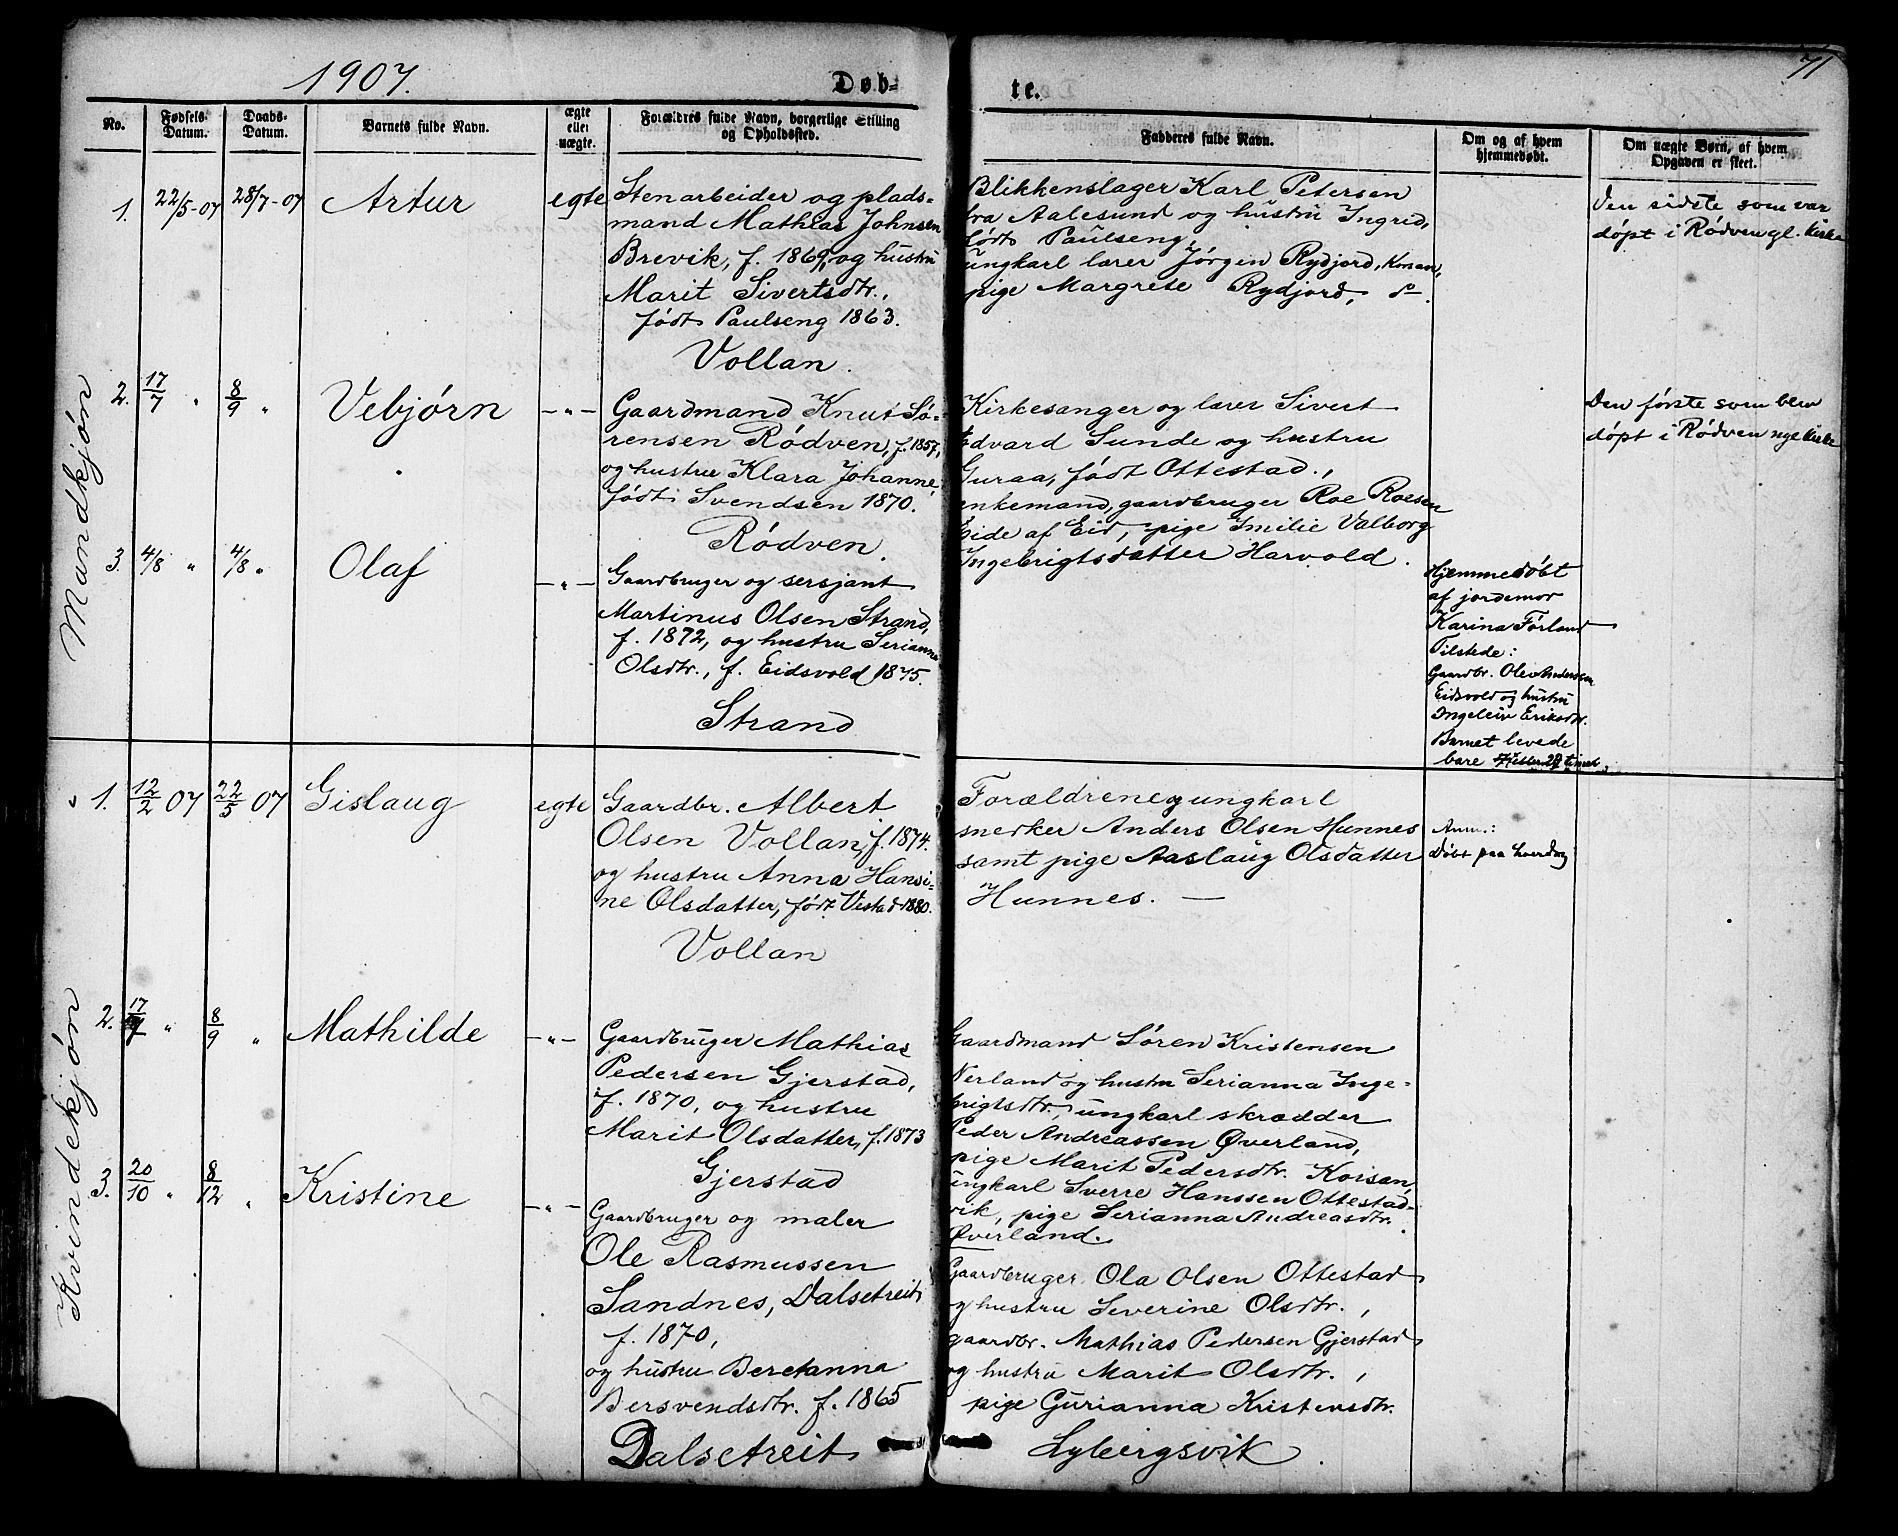 1907.
Døb-
te.
71
No.
Fødsels-
Datum.
Daabs-
Datum.
Barnets fulde Navn.
ægte
eller
uægte.
Forældres fulde Navn, borgerlige Stilling
og Opholdssted.
Faddernes fulde Navn.
Om og af hvem
hjemmedøbt.
Om uægte Børn, af hvem
Opgaven er skeet.
Mandkjøn
1. 22/5-07 28/7-07 Artur egte
Stenarbeider og plads-
mand Mathias Johnsen
Brevik, f. 1869, og hustru
Marit Sivertsdtr.,
født Paulseng 1863.
Vollan.
Blikkenslager Karl Petersen
fra Aalesund og hustru Ingrid,
født Paulseng,
ungkarl lærer Jørgen Rydjord,
pige Margrete Rydjord, d-.
Den sidste som var
døpt i Rødven gl. Kirke
2. 17/7 " 8/9 " Vebjørn -"-
Gaardmand Knut Sø-
rensen Rødven, f. 1857,
og hustru Klara Johanne,
født Svendsen 1870.
Rødven.
Kirkesanger og lærer Sivert
Edvard Sunde og hustru
Guraa, født Ottestad.,
enkemand, gaardbruger Roe Roesen
Eide af Eid, pige Emilie Valborg
Ingebrigtsdatter Harvold.
Den første som blev
døpt i Rødven nye Kirke
3. 4/8 " 4/8 " Olaf -"-
Gaardbruger og sersjant
Martinus Olsen Strand,
f. 1872, og hustru Serianna
Olsdtr., f. Eidsvold 1875.
Strand
Hjemmedøbt
af jordemor
Karina Førland
Tilstede:
Gaardbr. Ole Andersen
Eidsvold og hustru
Ingeleiv Eriksdtr.
Barnet levede
bare
Kvindekjøn
" 1. 12/2 07 22/5 07 Gislaug egte
Gaardbr. Albert
Olsen Vollan, f. 1874.
og hustru Anna Hansi-
ne Olsdatter, født Vestad 1880.
Vollan
Forældrene og ungkarl
snedker Anders Olsen Hunnes
samt pige Aaslaug Olsdatter
Hunnes. —
Anm.:
Døbt paa hverdag
2. 17/7 " 8/9 " Mathilde -"-
Gaardbruger Mathias
Pedersen Gjerstad,
f. 1870, og hustru
Marit Olsdatter, f. 1873
Gjerstad
Gaardmand Søren Kristensen
Nerland og hustru Serianna Inge-
brigtsdtr., ungkarl skrædder
Peder Andreassen Øverland,
pige Marit Pedersdtr. Korsan,
ungkarl Sverre Hanssen Ottestad-
vik, pige Serianna Andreasdtr.
Øverland.
3. 20/10 " 8/12 " Kristine -"-
Gaardbruger og maler
Ole Rasmussen
Sandnes, Dalsetreit
f. 1870,
og hustru Beretanna
Bersvendsdtr. f. 1865
Dalsetreit
Gaardbruger Ola Olsen Ottestad
og hustru Severine Olsdtr.,
gaardbr. Mathias Pedersen Gjerstad
og hustru Marit Olsdtr.,
pige Gurianna Kristensdtr.
Lybergsvik.